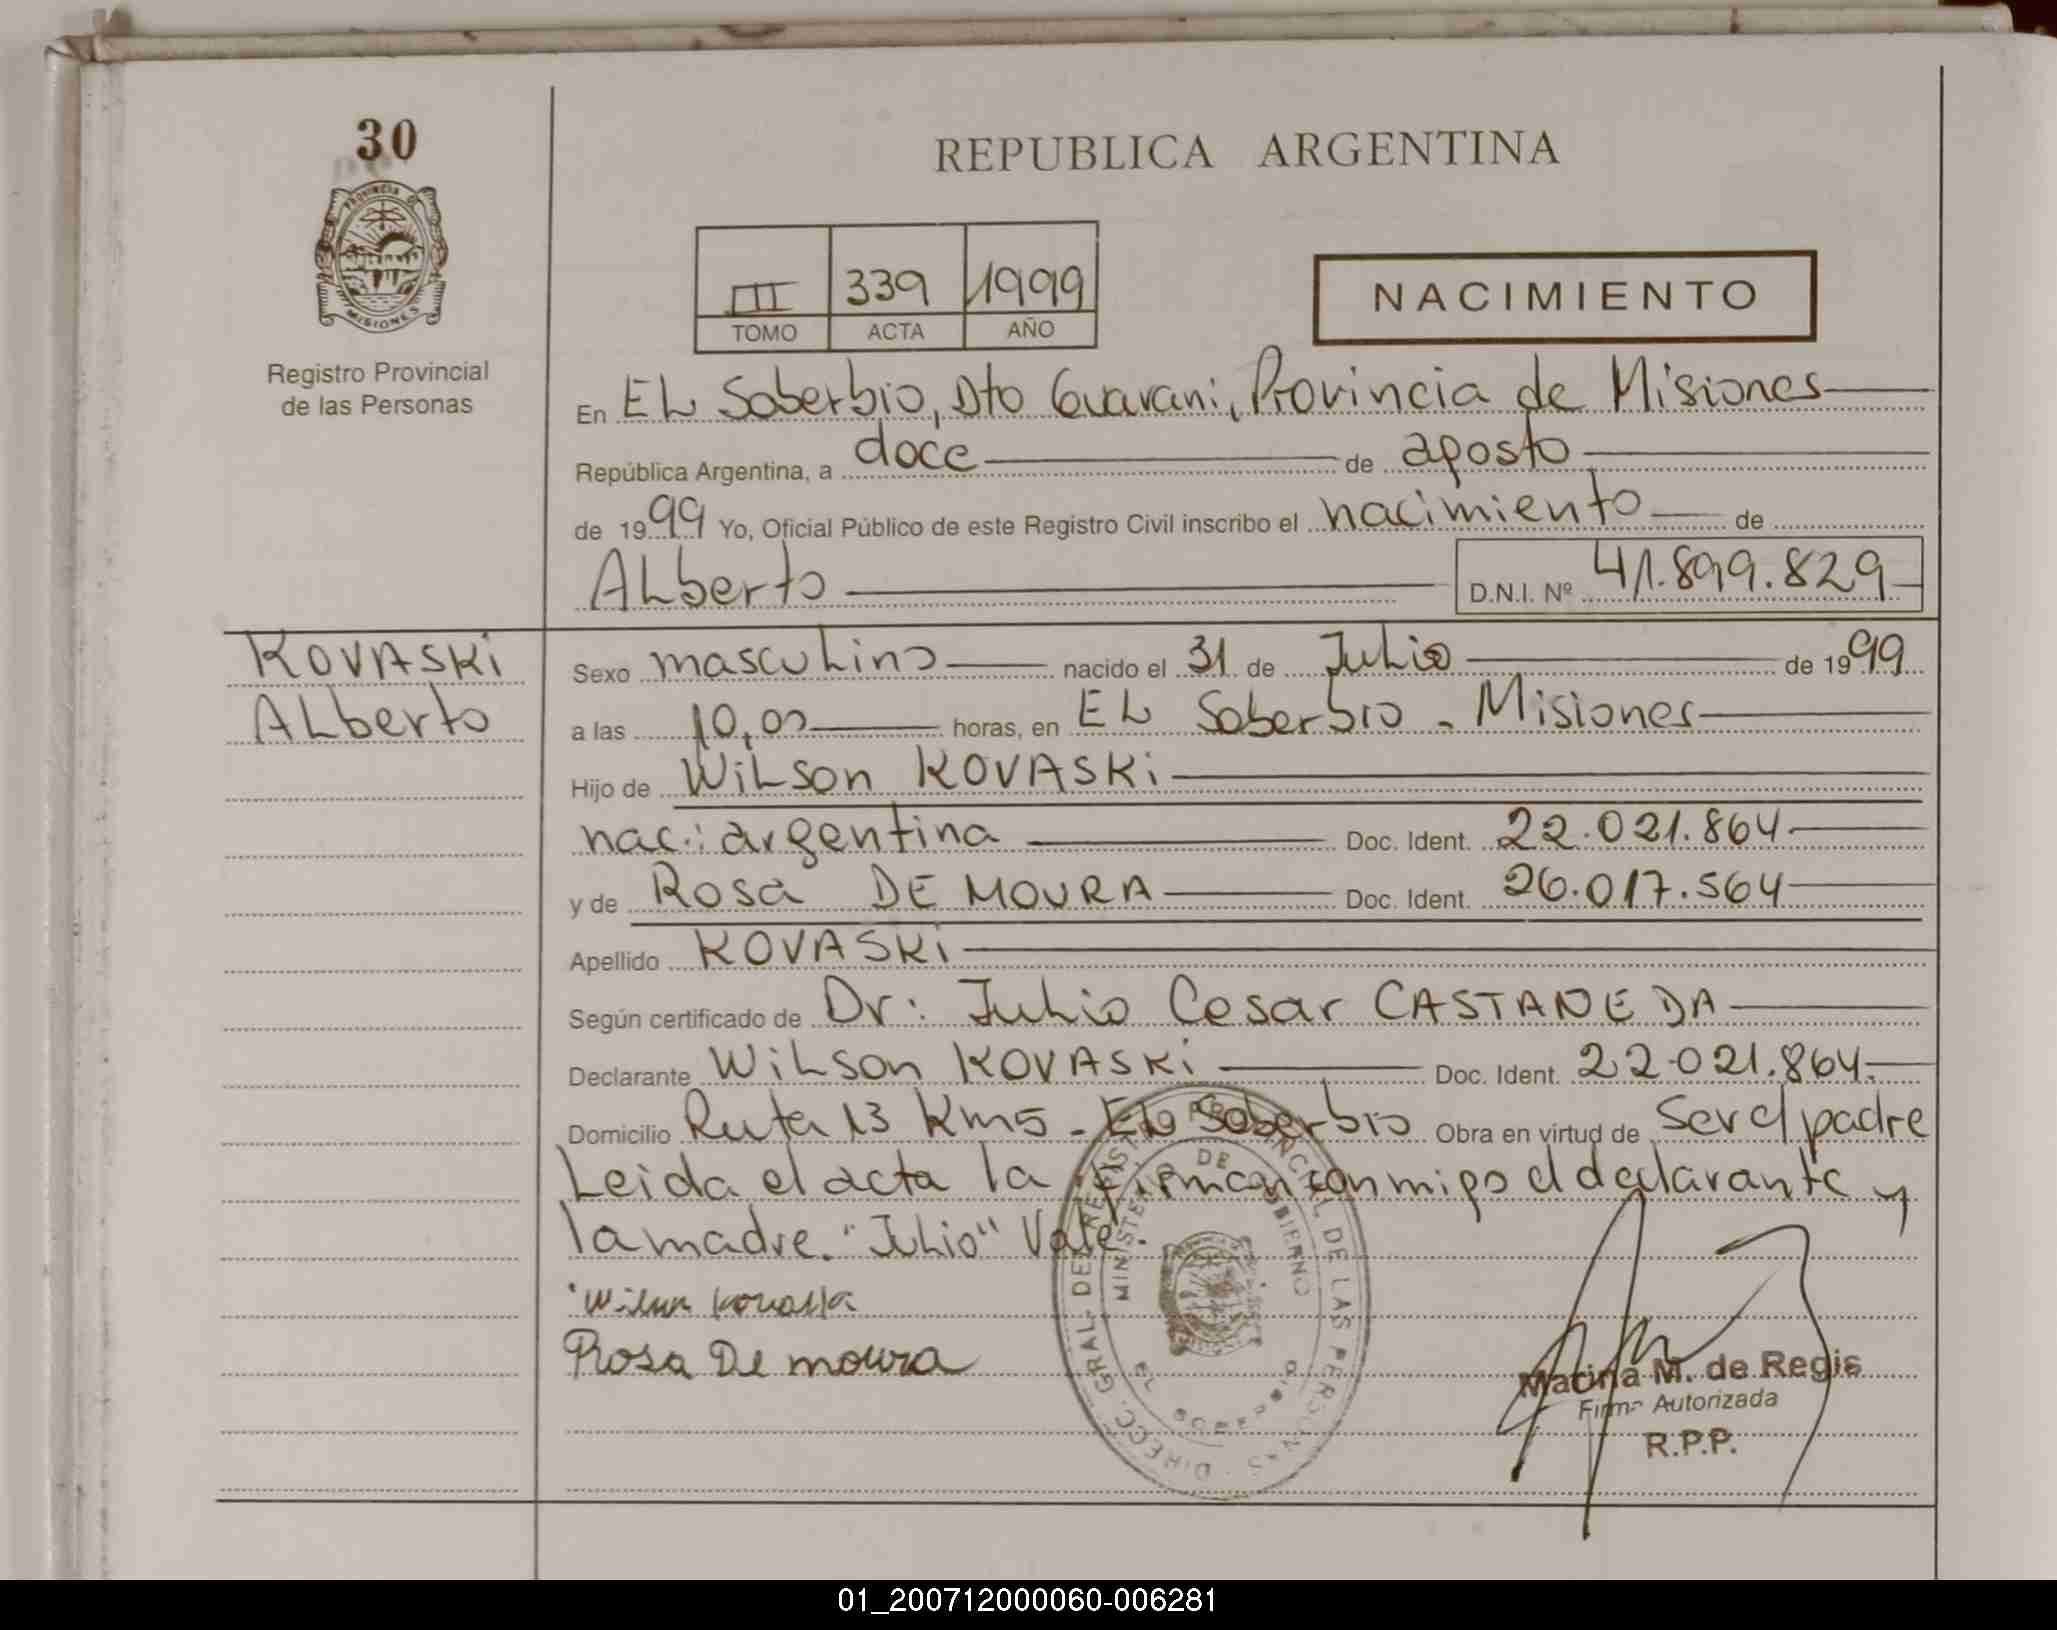 30
PROVINCIA D
MISIONES
Registro Provincial
de las Personas
REPUBLICA ARGENTINA
III 339 1999
TOMO ACTA AÑO
NACIMIENTO
En EL Soberbio, Dto Guarani, Provincia de Misiones
República Argentina, a doce de agosto
de 1999 Yo, Oficial Público de este Registro Civil inscribo el nacimiento de
ALberto D.N.I. Nº 41.899.829
KOVASKi
ALberto
Sexo mascuLino nacido el 31 de JuLio de 1999
a las 10,00 horas, en EL Soberbio - Misiones
Hijo de WiLson KOVASKi
nac.: argentina Doc. Ident. 22.021.864
y de Rosa DE MOURA Doc. Ident. 26.017.564
Apellido KOVASKi
Según certificado de Dr: JuLio Cesar CASTANEDA
Declarante WiLson KOVASKi Doc. Ident. 22.021.864.
Domicilio Ruta 13 Km5 - EL Soberbio Obra en virtud de ser el padre
Leida el acta la firman conmigo el declarante y
la madre. "Julio" Vale.
Wilson Kovaski
Rosa De moura
DIRECC. GRAL. DEL REGISTRO PROVINCIAL DE LAS PERSONAS
MINISTERIO DE GOBIERNO
EL SOBERBIO
Marina M. de Regis
Firma Autorizada
R.P.P.
01_200712000060-006281